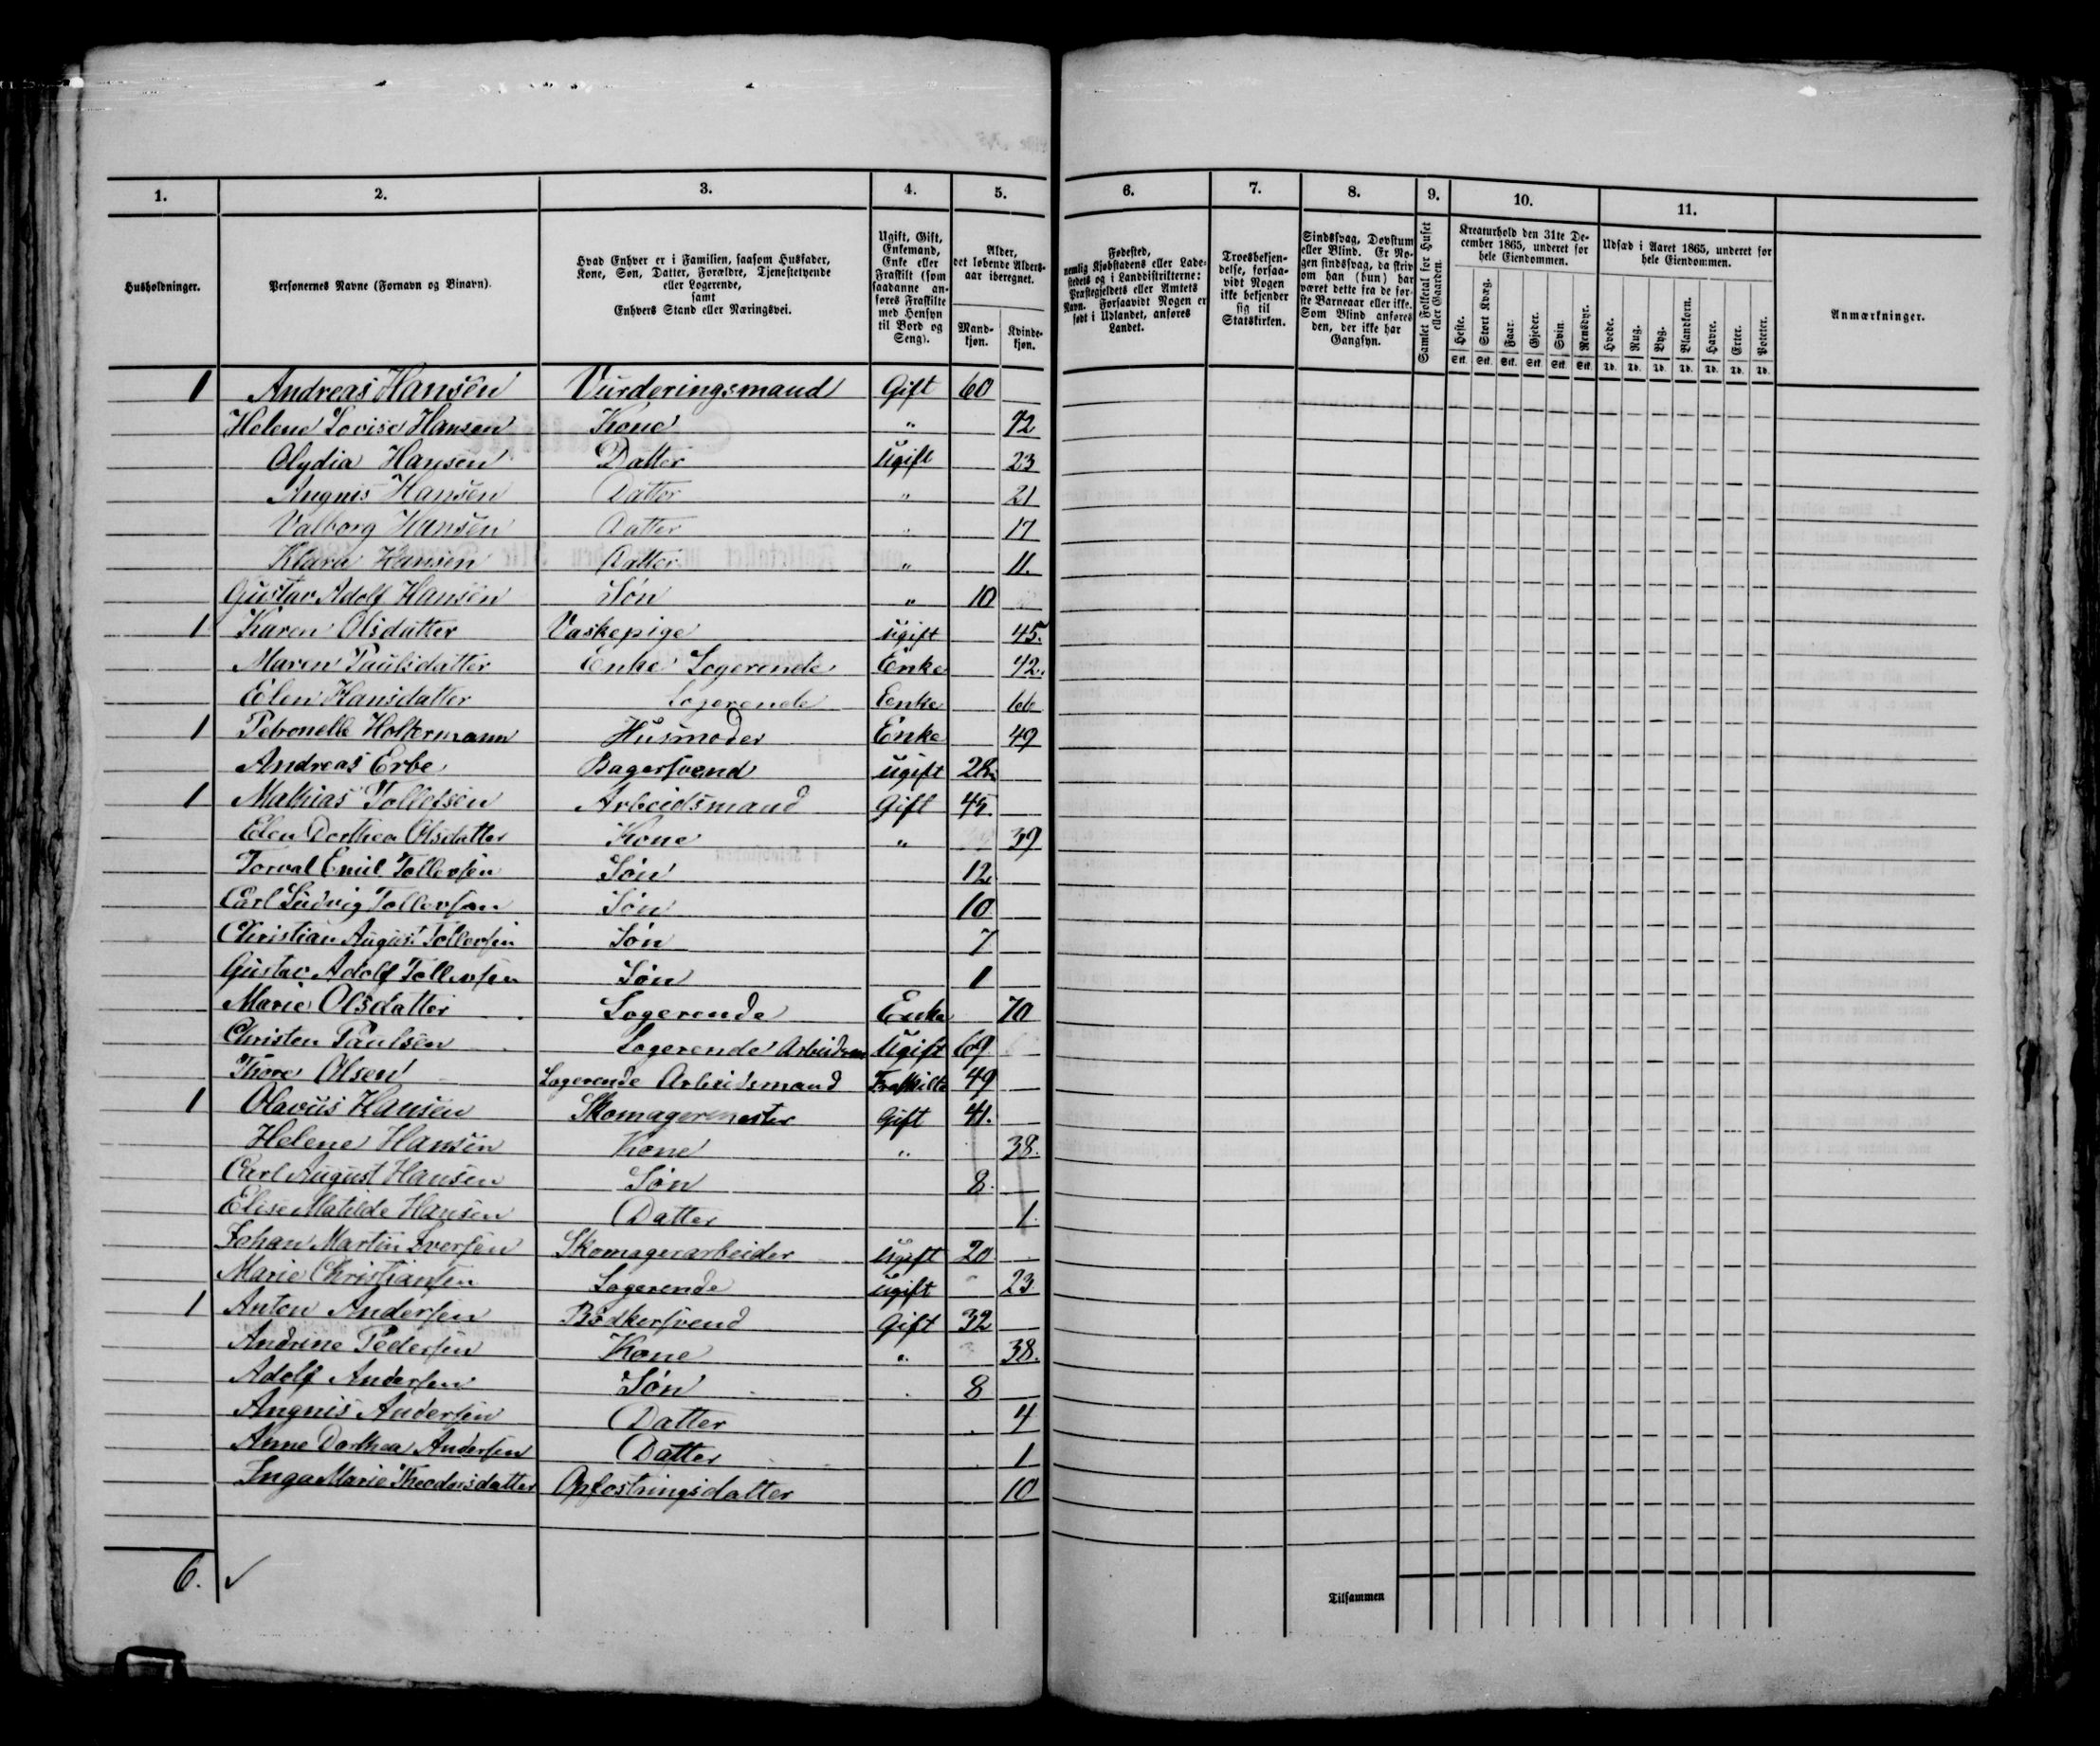 1. 2. 3. 4. 5. 6. 7. 8. 9. 10. 11.
Husholdninger.
Personernes Navne (Fornavn og Binavn).
Hvad Enhver er i Familien, saasom Husfader,
Kone, Søn, Datter, Forældre, Tjenestetyende
eller Logerende,
samt
Enhvers Stand eller Næringsvei.
Ugift, Gift,
Enkemand,
Enke eller
Fraskilt (som
saadanne an-
føres Fraskilte
med Hensyn
til Bord og
Seng).
Alder,
det løbende Alders-
aar iberegnet.
Mand-
kjøn.
Kvinde-
kjøn.
Fødested,
nemlig Kjøbstadens eller Lade-
stedets og i Landdistrikterne:
Præstegjeldets eller Amtets
Navn. Forsaavidt Nogen er
født i Udlandet, anføres
Landet.
Troesbekjen-
delse, forsaa-
vidt Nogen
ikke bekjender
sig til
Statskirken.
Sindssvag, Døvstum
eller Blind. Er No-
gen sindssvag, da skriv
om han (hun) har
været dette fra de før-
ste Barneaar eller ikke.
Som Blind anføres
den, der ikke har
Gangsyn.
Samlet Folketal for Huset
eller Gaarden.
Kreaturhold den 31te De-
cember 1865, underet for
hele Eiendommen.
Heste. Stort Kvæg. Faar. Gjeder. Svin. Rensdyr.
Stk. Stk. Stk. Stk. Stk. Stk.
Udsæd i Aaret 1865, underet for
hele Eiendommen.
Hvede. Rug. Byg. Blandkorn. Havre. Erter. Poteter.
Td. Td. Td. Td. Td. Td. Td.
Anmærkninger.
1 Andreas Hansen Vurderingsmand Gift 60
Helene Lovise Hansen Kone " 42
Olydia Hansen Datter Ugift 23
Angnis Hansen Datter " 21
Valborg Hansen Datter " 17
Klara Hansen Datter " 11.
Gustav Adolf Hansen Søn " 10
1 Karen Olsdatter Vaskepige ugift 45.
Maren Paulsdatter Enke Logerende Enke 42.
Elen Hansdatter Logerende Eenke 66
1 Petronelle Holtermann Husmoder Enke 49
Andreas Erbe Bagersvend ugift 28.
1 Mathias Tollefsen Arbeidsmand Gift 45.
Elen Dorthea Olsdatter Kone " 39
Torval Emil Tollevsen Søn 12
Carl Ludvig Tollevsen Søn 10
Christian August Tollevsen Søn 7
Gustav Adolf Tollevsen Søn 1
Marie Olsdatter Logerende Enke 70
Christen Paulsen Logerende Arbeidsm Ugift 69
Thore Olsen Logerende Arbeidsmand Fraskilte 49
1 Olavus Hansen Skomagermester Gift 41.
Helene Hansen Kone " 38.
Carl August Hansen Søn 8.
Elise Matilde Hansen Datter 1.
Johan Martin Iversen Skomagerarbeider ugift 20
Marie Christiansen Logerende ugift 23
1 Anton Andersen Bødkersvend Gift 32
Andrine Pedersen Kone " 38.
Adolf Andersen Søn 8
Angnis Andersen Datter 4
Anne Dorthea Andersen Datter 1
Inga Marie Theodorsdatter Opfostringsdatter 10
6. ✓
Tilsammen